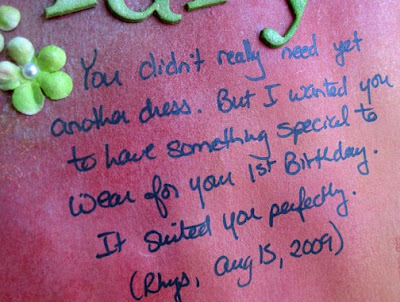 You didn't really need yet
another dress. But I wanted you
to have something special to
wear for your 1st Birthday.
It suited you perfectly.
(Rhys, Aug 15, 2009)